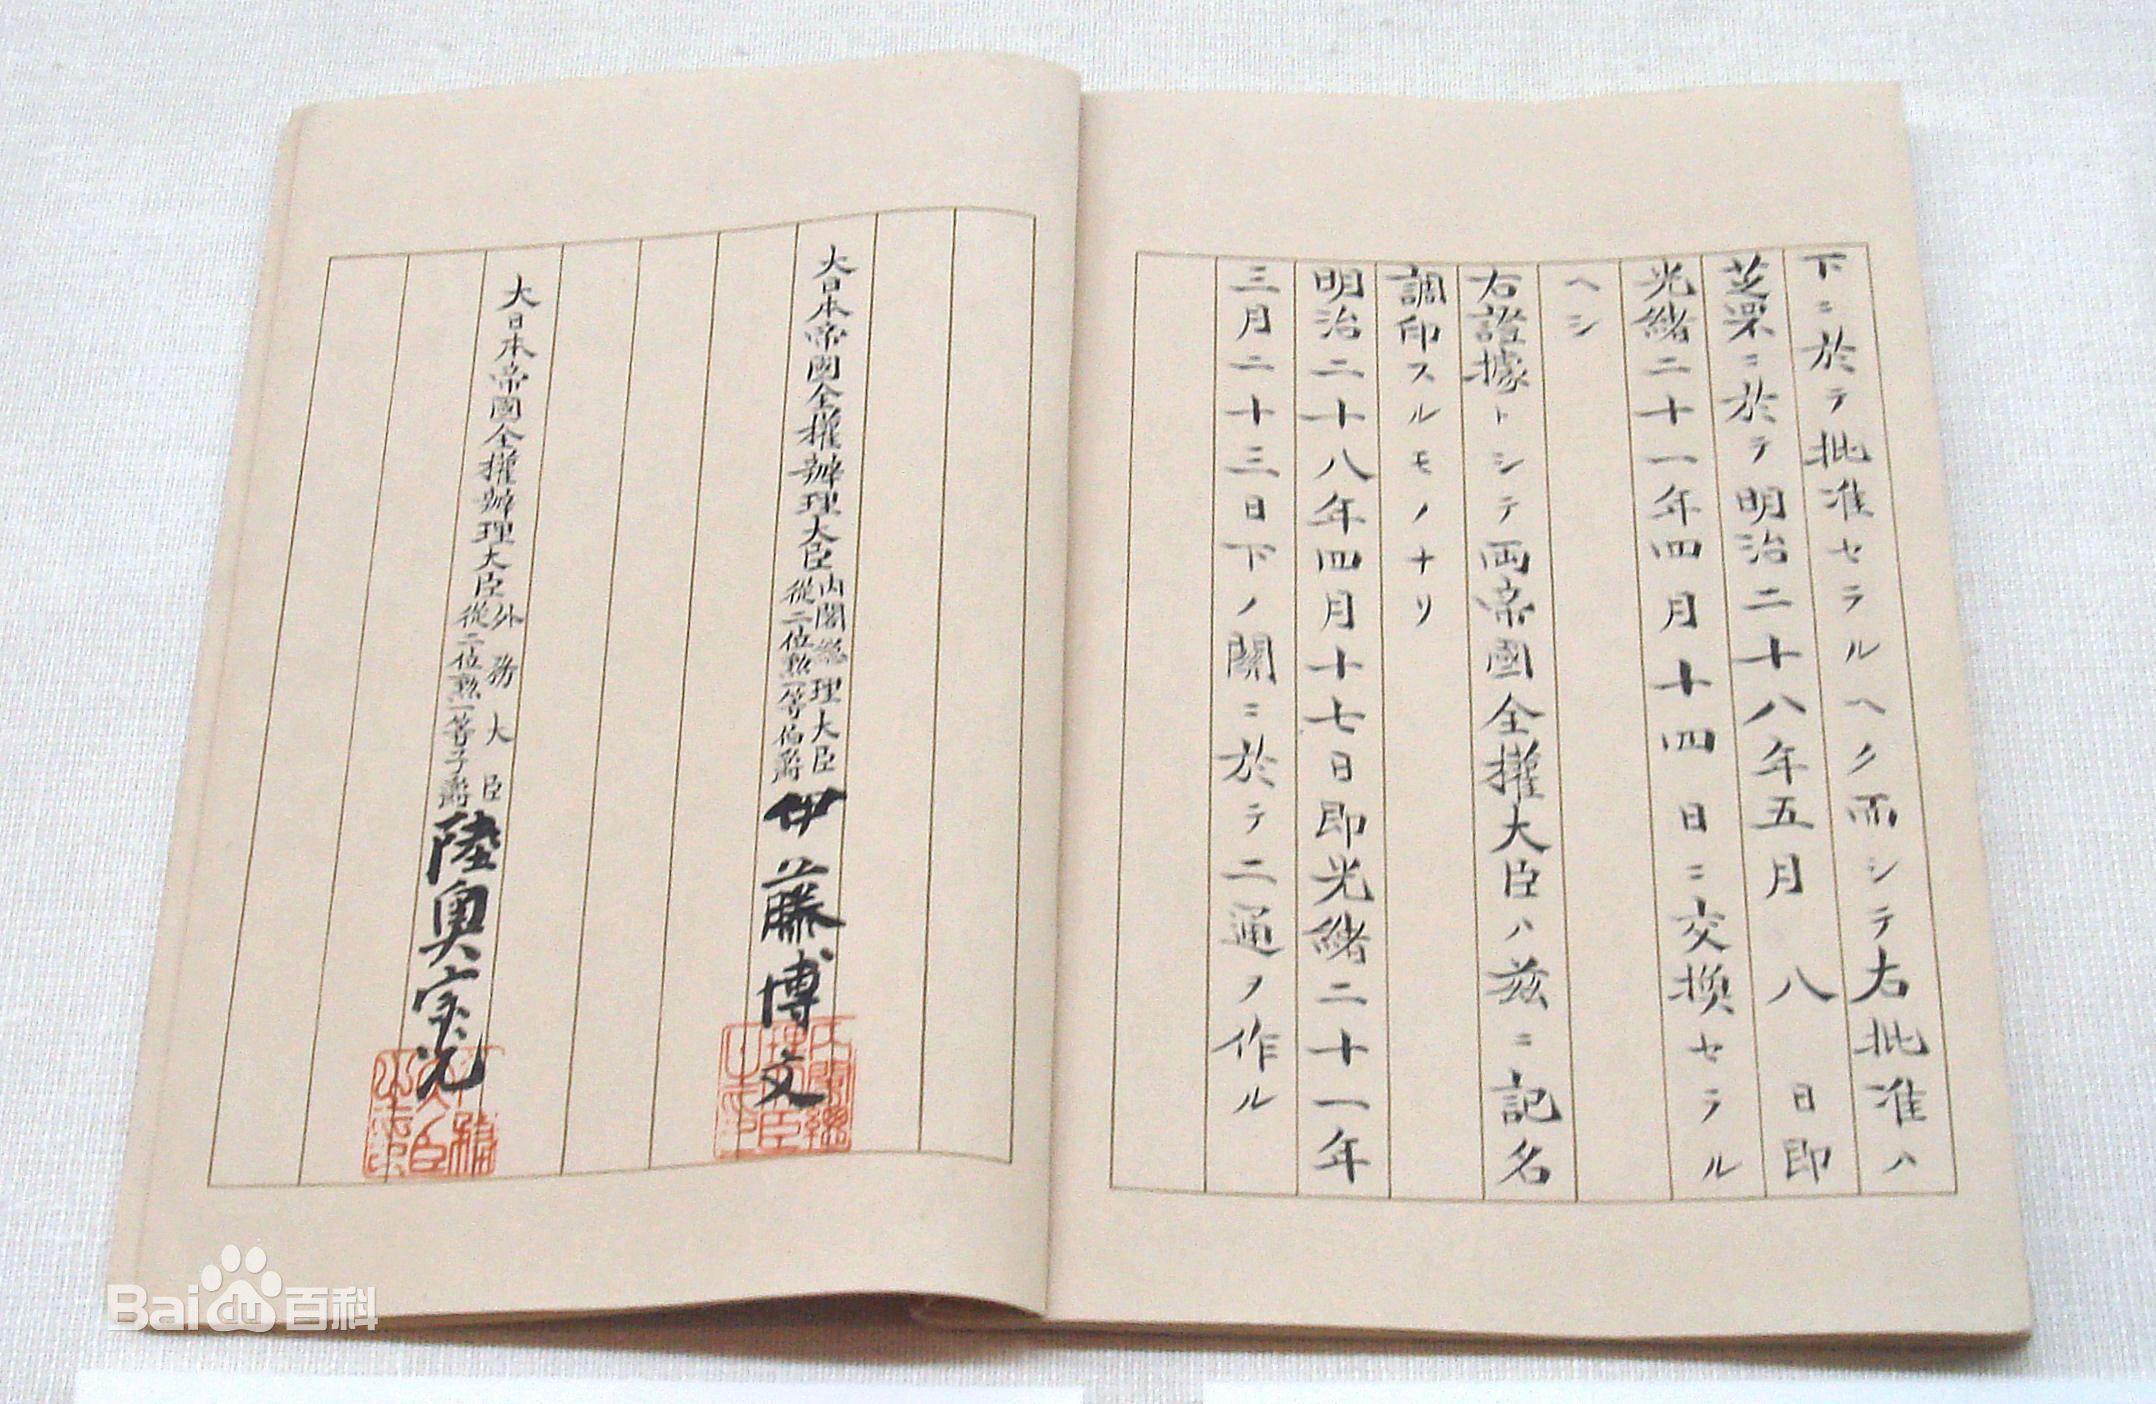 下ニ於テ批准セラルヘク而シテ右批准ハ
芝罘ニ於テ明治二十八年五月八日即
光緒二十一年四月十四日ニ交換セラル
ヘシ
右證據トシテ両帝國全權大臣ハ茲ニ記名
調印スルモノナリ
明治二十八年四月十七日即光緒二十一年
三月二十三日下ノ關ニ於テ二通ヲ作ル
大日本帝國全權辦理大臣
内閣總理大臣
從二位勲一等伯爵
伊藤博文
大日本帝國全權辦理大臣
外務大臣
從二位勲一等子爵
陸奥宗光
Bai du 百科